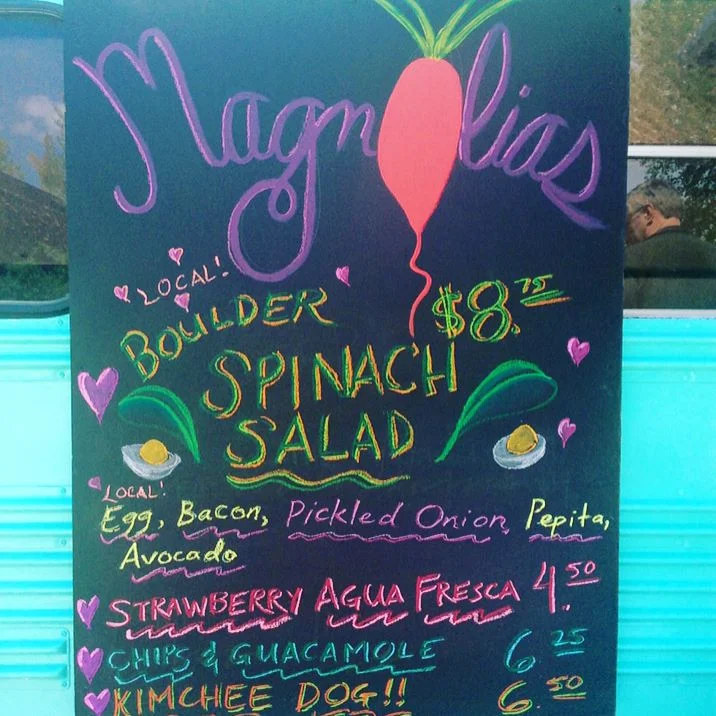 Magnolias
LOCAL!
BOULDER $8.75
SPINACH
SALAD
LOCAL!
Egg, Bacon, Pickled Onion, Pepita,
Avocado
STRAWBERRY AGUA FRESCA 4.50
CHIPS & GUACAMOLE 6.25
KIMCHEE DOG!! 6.50